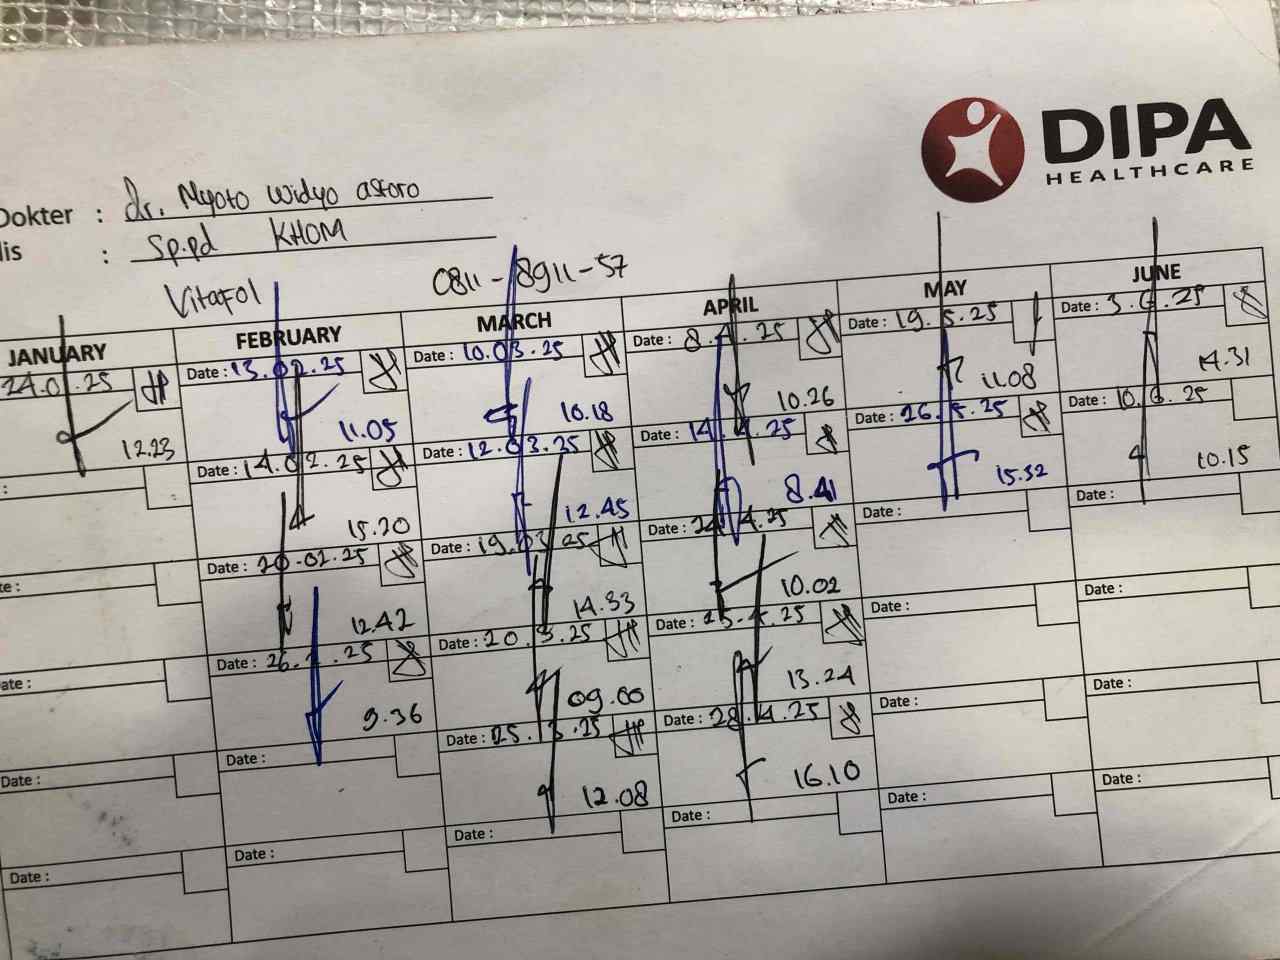 DIPA
HEALTHCARE
Dokter : dr. Nyoto Widyo astoro
lis : Sp.pd KHOM
Vitafol 0811-8911-57
JANUARY
24.01.25
12.23
:
te :
ate :
Date :
Date :
FEBRUARY
Date : 13.02.25
11.05
Date : 14.02.25
15.20
Date : 20.02.25
12.42
Date : 26.2.25
9.36
Date :
Date :
MARCH
Date : 10.03.25
10.18
Date : 12.03.25
12.45
Date : 19.03.25
14.33
Date : 20.3.25
09.00
Date : 25.3.25
12.08
Date :
APRIL
Date : 8.4.25
10.26
Date : 14.4.25
8.41
Date : 24.4.25
10.02
Date : 25.4.25
13.24
Date : 28.4.25
16.10
Date :
MAY
Date : 19.5.25
11.08
Date : 26.5.25
15.32
Date :
Date :
Date :
Date :
JUNE
Date : 3.6.25
14.31
Date : 10.6.25
10.15
Date :
Date :
Date :
Date :